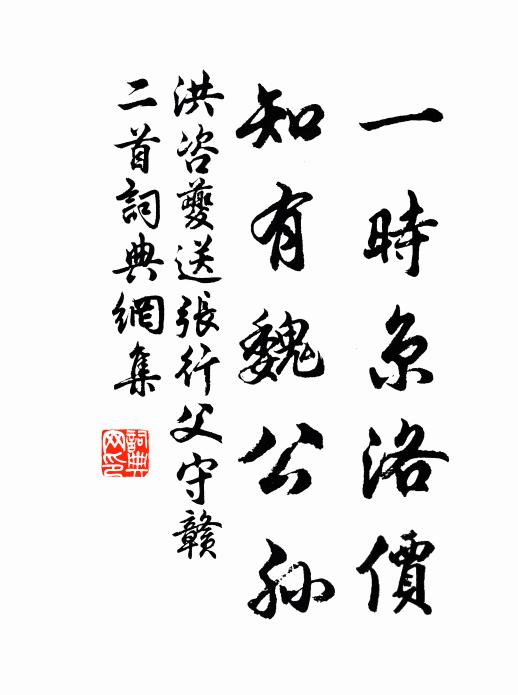 一時京洛價
知有魏公孫
洪咨夔送張行父守贛
二首詞典網集
詞典
网印